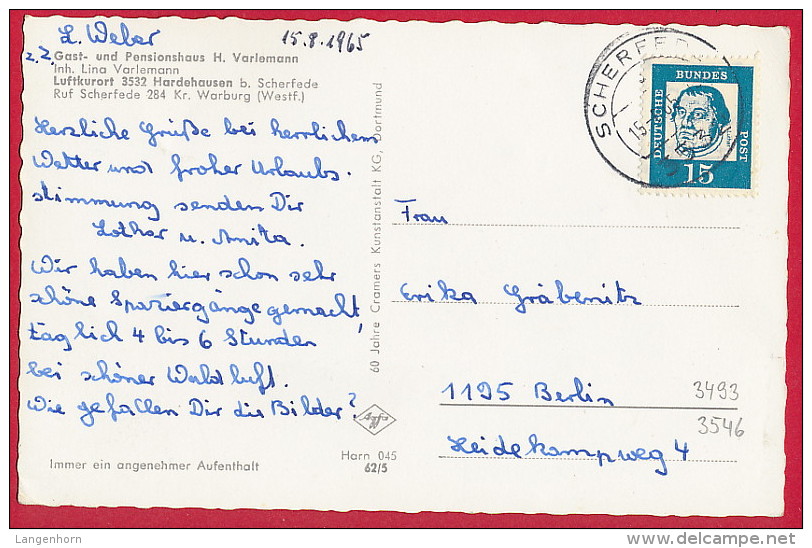 L. Weber
15.8.1965
z. Z. Gast- und Pensionshaus H. Varlemann
Inh. Lina Varlemann
Luftkurort 3532 Hardehausen b. Scherfede
Ruf Scherfede 284 Kr. Warburg (Westf.)
Herzliche Grüße bei herrlichem
Wetter und froher Urlaubs-
stimmung senden Dir
Lothar u. Anita.
Wir haben hier schon sehr
schöne Spaziergänge gemacht,
täglich 4 bis 6 Stunden
bei schöner Waldluft.
Wie gefallen Dir die Bilder?
Immer ein angenehmer Aufenthalt
60 Jahre Cramers Kunstanstalt KG, Dortmund
Agfa
Harn 045
62/5
SCHERFEDE
15
DEUTSCHE
BUNDES
POST
15
Frau
Erika Gräbenitz
1195 Berlin
Heidekampweg 4
3493
3546
Langenhorn
delcampe.net